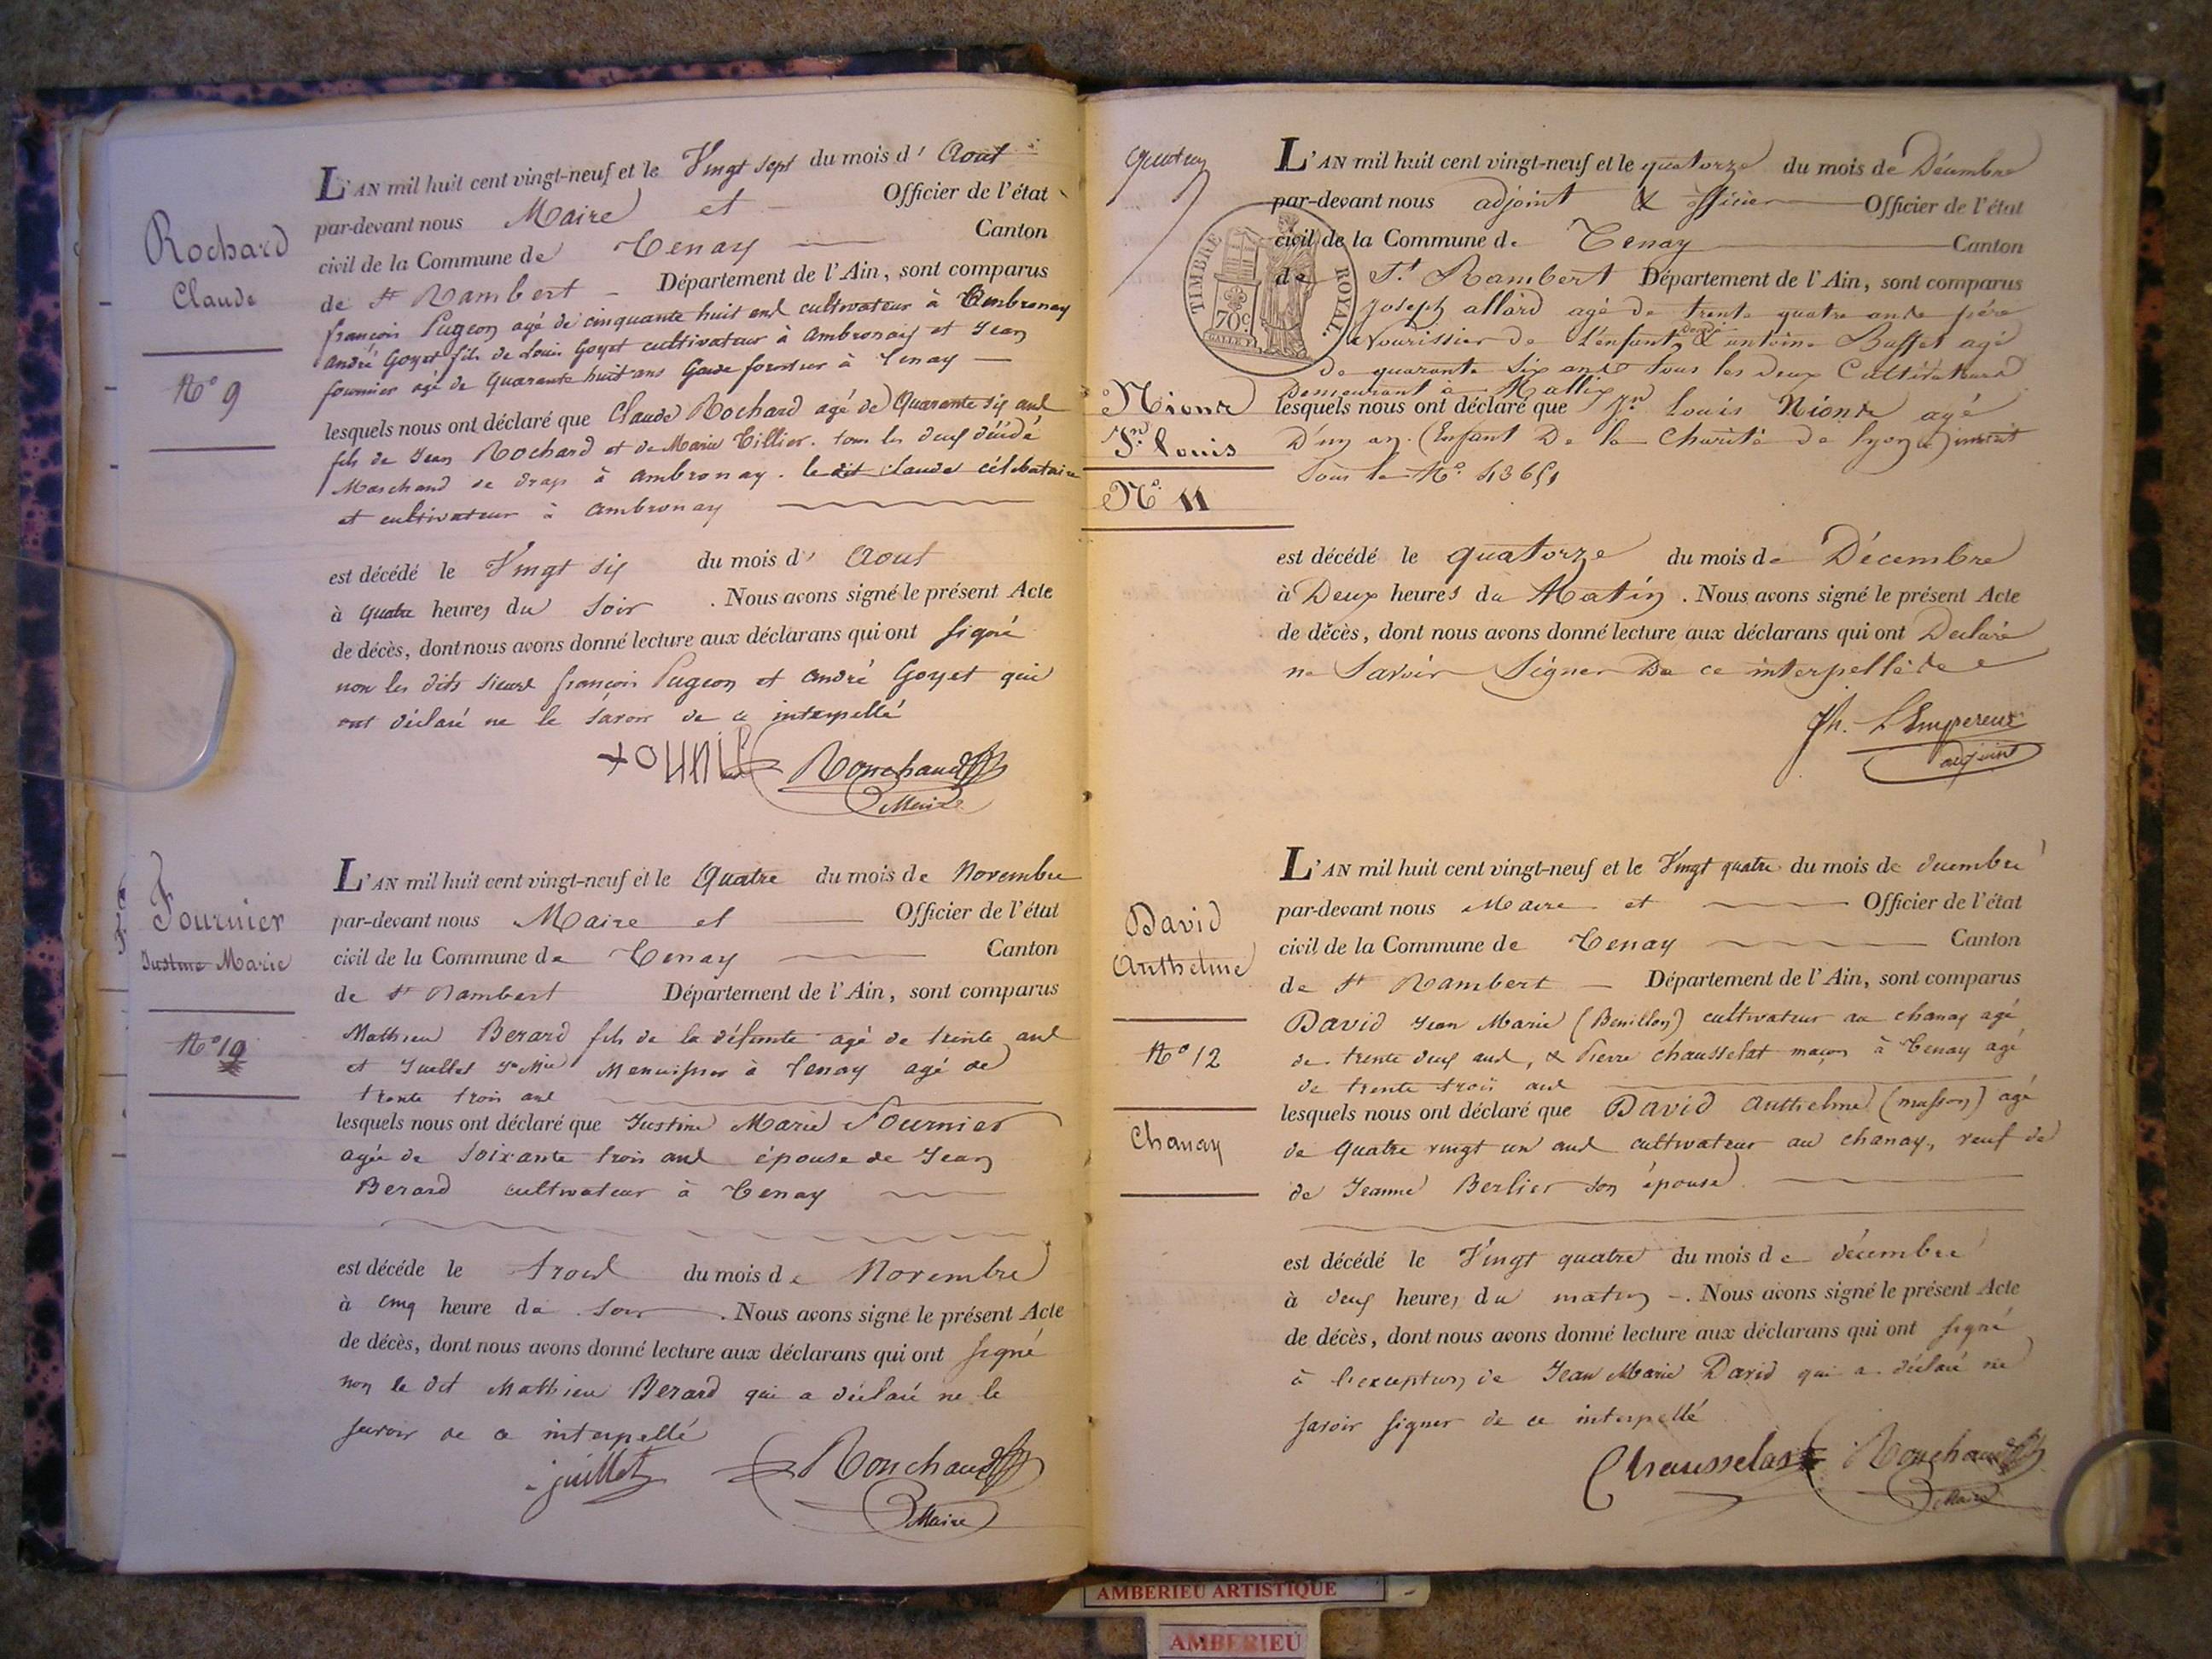 Rochard
Claude
N° 9
L'AN mil huit cent vingt-neuf et le Vingt sept du mois d' Aout
par-devant nous Maire et Officier de l'état
civil de la Commune de Tenay Canton
de St Rambert Département de l'Ain, sont comparus
françois Pugeon agé de cinquante huit ans cultivateur à Ambronay
André Goyet fils de Louis Goyet cultivateur à Ambronay et Jean
fournier agé de Quarante huit ans Garde forestier à Tenay
lesquels nous ont déclaré que Claude Rochard agé de Quarante six ans
fils de Jean Rochard et de Marie Tillier. tous les deux décédé
Marchand de drap à ambronay. le dit Claude célibataire
et cultivateur à ambronay
est décédé le Vingt six du mois d' Aout
à quatre heures du Soir . Nous avons signé le présent Acte
de décès, dont nous avons donné lecture aux déclarans qui ont signé
non les dits sieurs françois Pugeon et André Goyet qui
ont déclaré ne le savoir de ce interpellé
Ronchaud
Maire
Fournier
Justine Marie
N° 10
L'AN mil huit cent vingt-neuf et le Quatre du mois de Novembre
par-devant nous Maire et Officier de l'état
civil de la Commune de Tenay Canton
de St Rambert Département de l'Ain, sont comparus
Mathieu Berard fils de la défunte agé de trente ans
et Juillet Jn Mie Menuisier à Tenay agé de
trente trois ans
lesquels nous ont déclaré que Justine Marie Fournier
agée de Soixante trois ans épouse de Jean
Berard cultivateur à Tenay
est décédé le trois du mois de Novembre
à cinq heure du Soir . Nous avons signé le présent Acte
de décès, dont nous avons donné lecture aux déclarans qui ont signé
non le dit Mathieu Berard qui a déclaré ne le
savoir de ce interpellé
juillet Ronchaud
Maire
L'AN mil huit cent vingt-neuf et le quatorze du mois de Décembre
par-devant nous adjoint & officier Officier de l'état
civil de la Commune de Tenay Canton
de St Rambert Département de l'Ain, sont comparus
TIMBRE ROYAL
70c
Joseph allard agé de trente quatre ans père
Nourissier de L'enfant & antoine Buffet agé
de quarante Six ans tous les deux Cultivateurs
Demeurant à Mallix
Nionr
Jn Louis
N° 11
lesquels nous ont déclaré que Jn Louis Nionr agé
D'un an. (Enfant De la Charité de lyon) inscrit
Sous le N° 43651
est décédé le quatorze du mois de Décembre
à Deux heures du Matin . Nous avons signé le présent Acte
de décès, dont nous avons donné lecture aux déclarans qui ont Déclaré
ne Savoir Signer De ce interpellé
Jh. L'Empereur
adjoint
David
Anthelme
N° 12
Chanay
L'AN mil huit cent vingt-neuf et le Vingt quatre du mois de décembre
par-devant nous Maire et Officier de l'état
civil de la Commune de Tenay Canton
de St Rambert Département de l'Ain, sont comparus
David Jean Marie (Benillon) cultivateur au chanay agé
de trente deux ans, & Pierre chausselat maçon à Tenay agé
de trente trois ans
lesquels nous ont déclaré que David Anthelme (masson) agé
de Quatre vingt un ans cultivateur au chanay, veuf de
de Jeanne Berlier son épouse
est décédé le Vingt quatre du mois de décembre
à deux heures du matin . Nous avons signé le présent Acte
de décès, dont nous avons donné lecture aux déclarans qui ont signé
à l'exception de Jean Marie David qui a déclaré ne
savoir signer de ce interpellé
Chausselat Ronchaud
Maire
AMBERIEU ARTISTIQUE
AMBERIEU